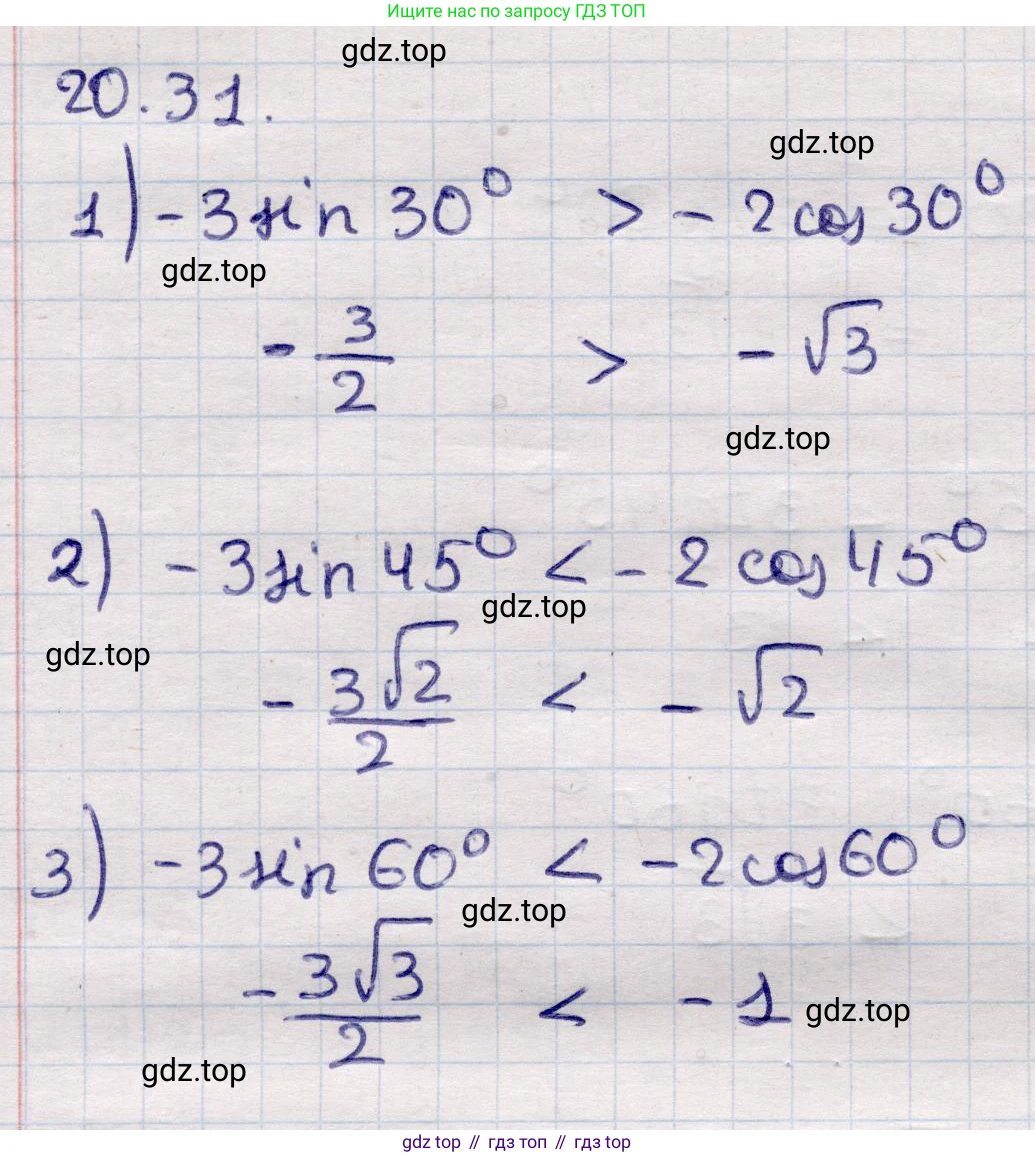 Ищите нас по запросу ГДЗ ТОП
gdz.top
20.31.
gdz.top
1) -3 sin 30⁰ > - 2 cos 30⁰
gdz.top
- 3/2 > - √3
gdz.top
2) - 3 sin 45⁰ < - 2 cos 45⁰
gdz.top
gdz.top
- 3√2/2 < - √2
3) -3 sin 60⁰ < -2 cos 60⁰
gdz.top
- 3√3/2 < - 1
gdz.top
gdz.top
gdz top // гдз топ // гдз top